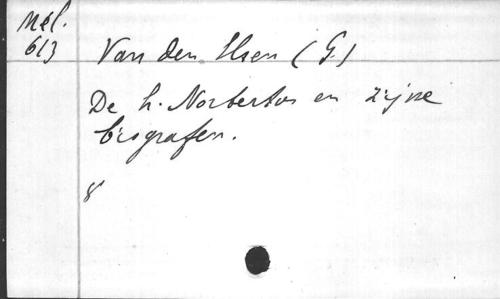 Mél.
613
Van den Elsen (G.)
De h. Norbertus en zijne
biografen.
8